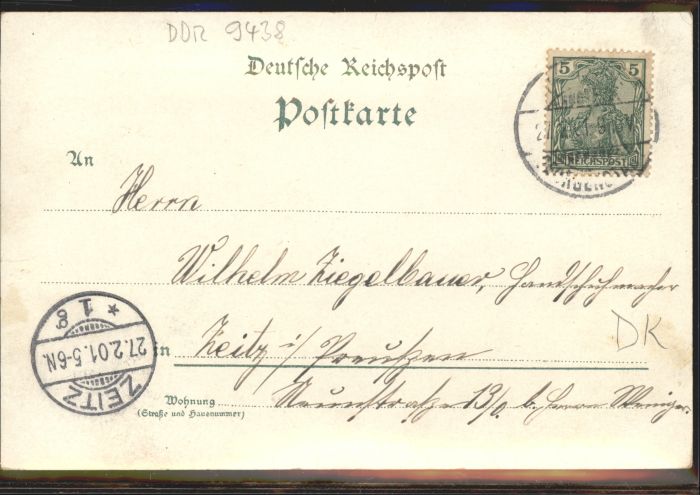 DDR 9438
Deutsche Reichspost
Postkarte
5 5
REICHSPOST
27.
An
Herrn
Wilhelm Ziegelbauer, Handschuhmacher
in Zeitz i/ Preußen
DK
Wohnung 13/0 b. Herrn
(Straße und Hausnummer)
* 1 g
27.2.01.5-6N.
ZEITZ